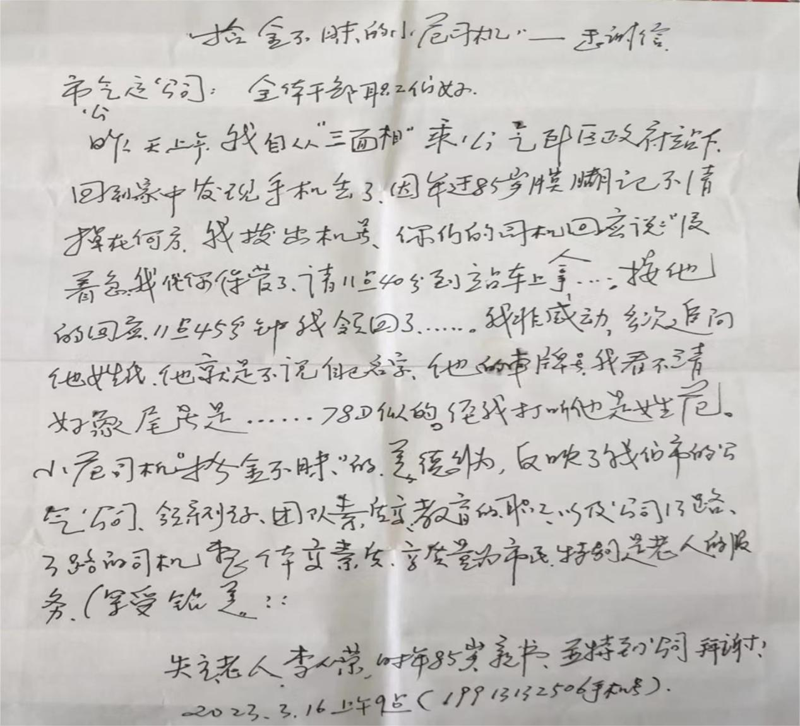 “拾金不昧的小范司机”—感谢信
市公汽公司：全体干部职工你好
昨天上午我自从“三面相”乘公汽到区政府站下
回到家中发现手机丢了，因年迈85岁模糊记不清
掉在何方，我拨出机号，你们的司机回应说：“没
着急，我代你保管了，请11点40分到站车上拿…，接他
的回应，11点45分钟我领回了……。我非感动，多次追问
他姓氏，他就是不说自己名字，他的车牌号我看不清
好象尾号是……78D似的，经我打听他是姓范。
小范司机“拾金不昧”的美德行为，反映了我们市的公
汽公司、领导好、团队素质高、教育的职工以及公司13路、
3路的司机整体高素质、高质量为市民特别是老人的服
务，深受
失主老人李人荣，时年85岁亲书、并特到公司拜谢！
2023.3.16上午9点（19913132506手机号）.